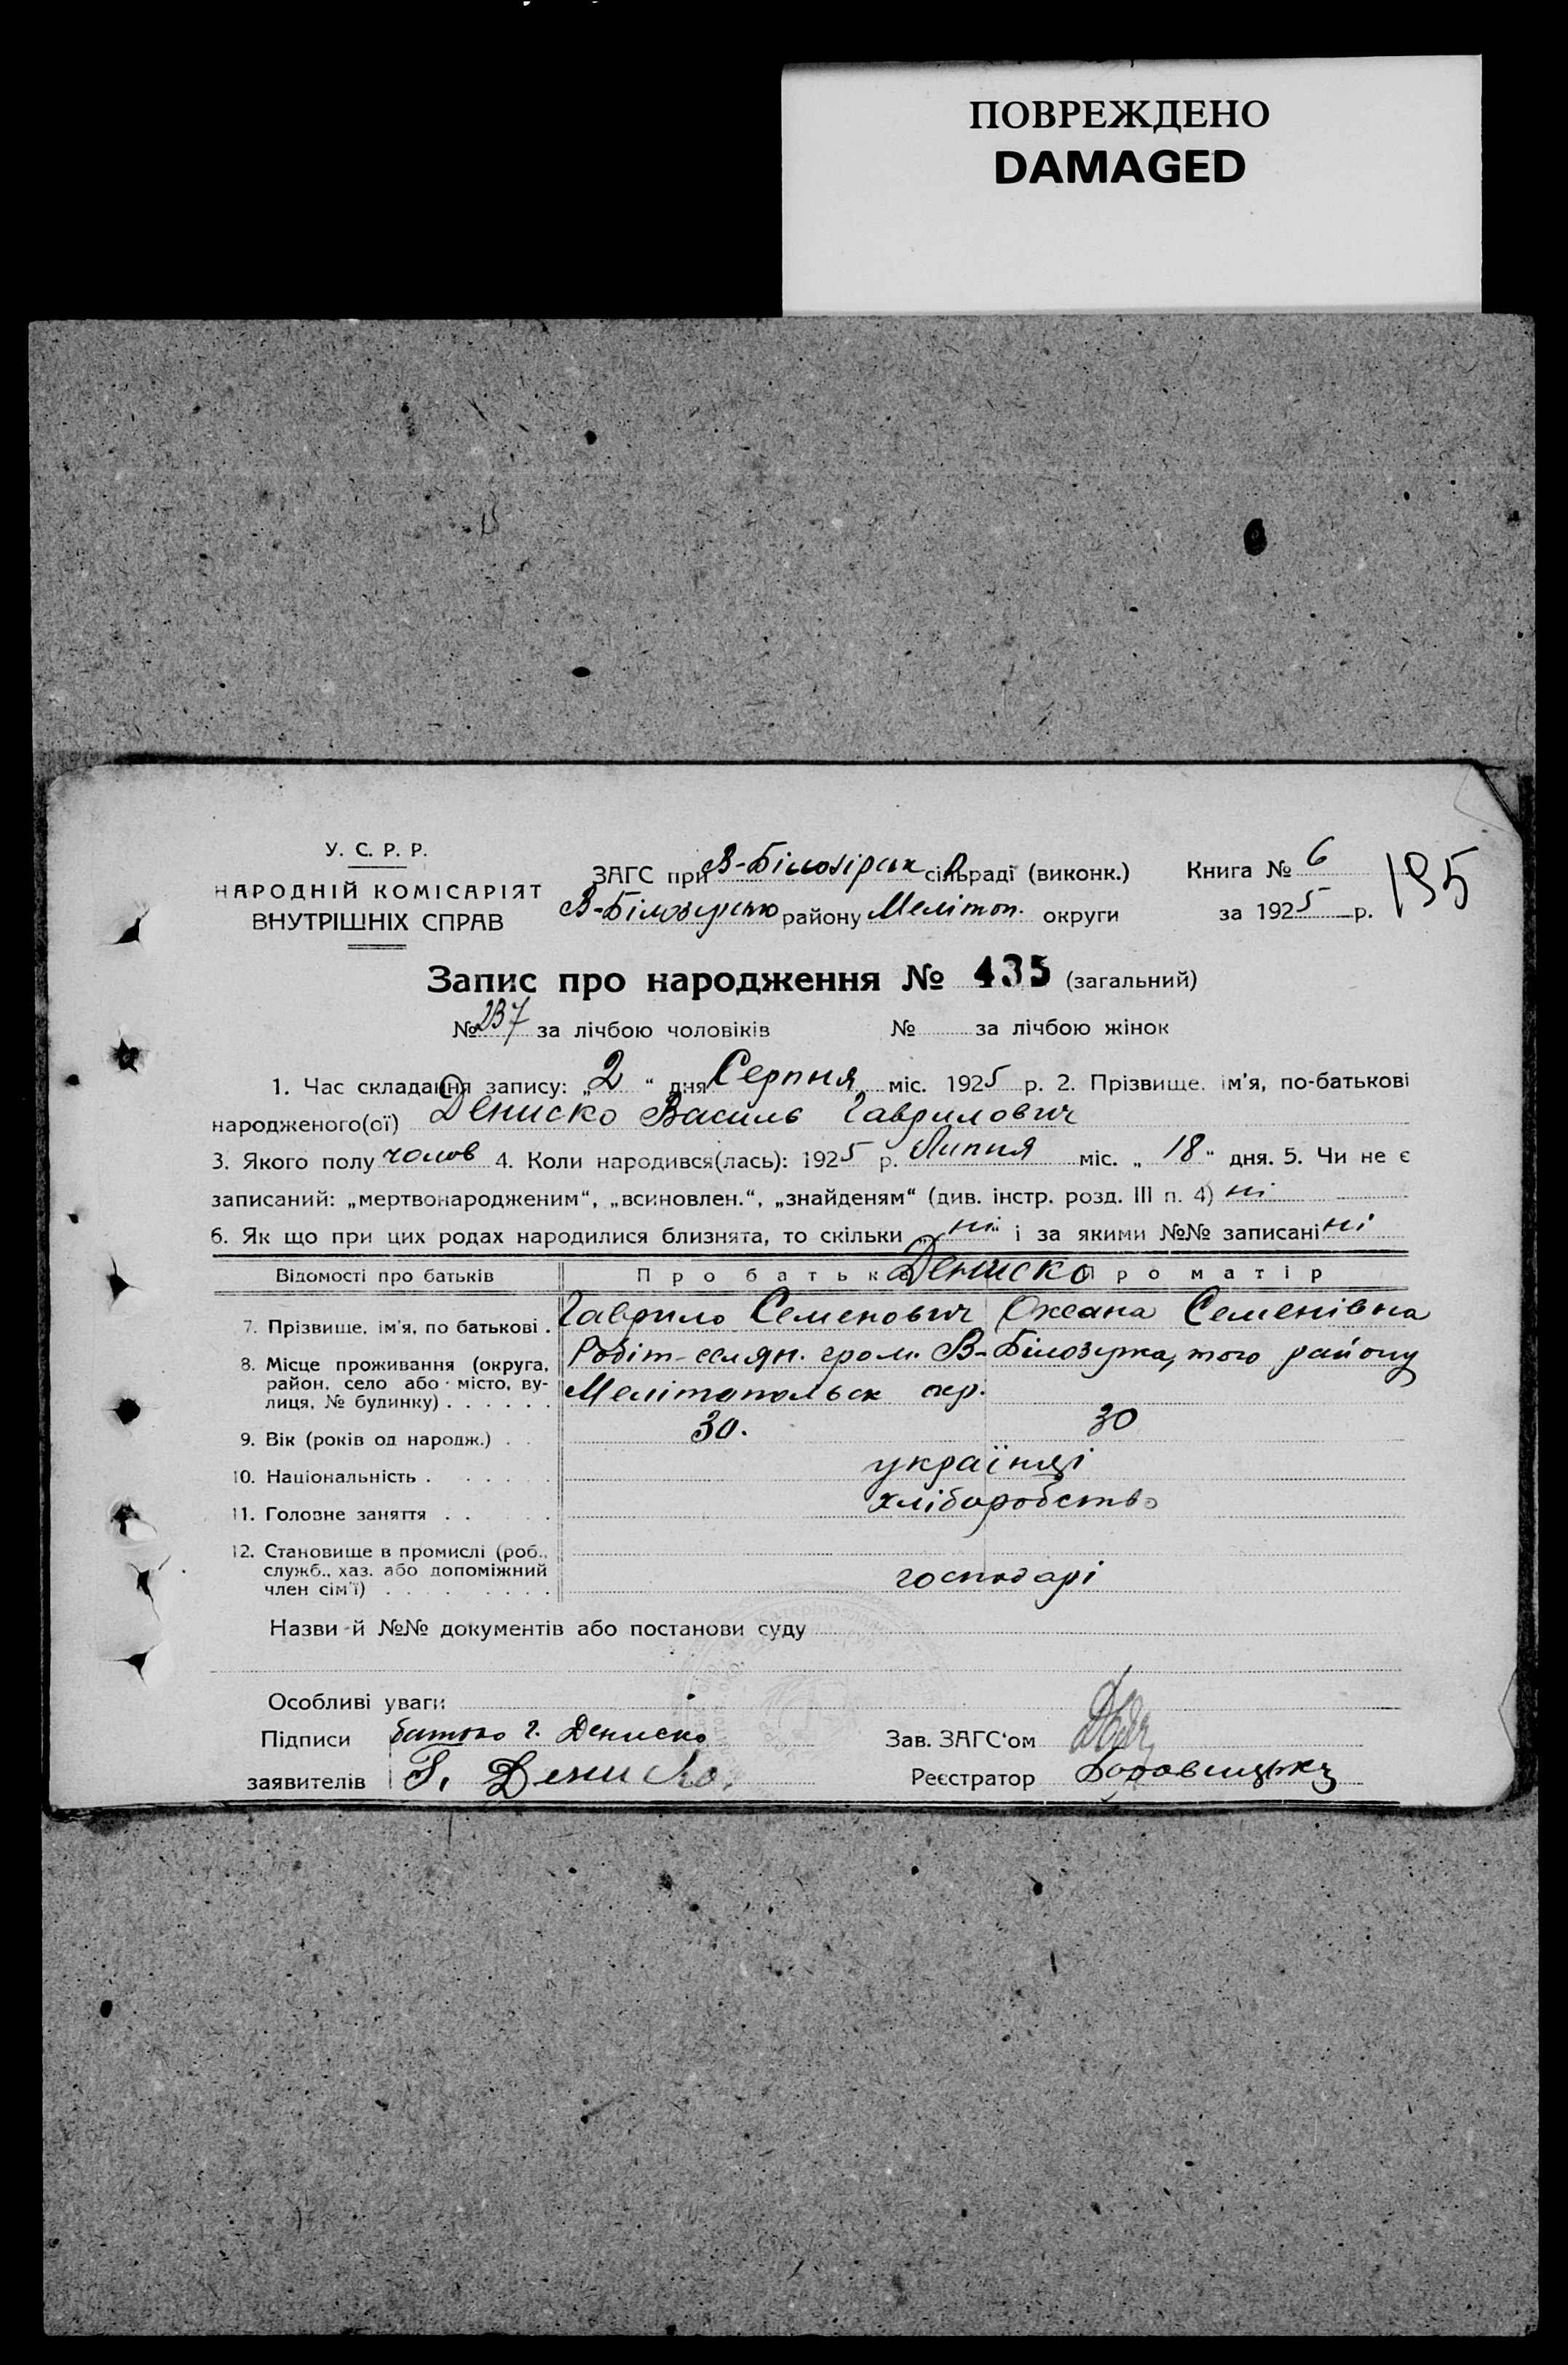 ПОВРЕЖДЕНО
DAMAGED
У. С. Р. Р.
НАРОДНІЙ КОМІСАРІЯТ
ВНУТРІШНІХ СПРАВ
ЗАГС при В-Білозірськ сільраді (виконк.)
В-Білозірсько району Мелітоп. округи
Книга № 6
за 1925 р.
195
Запис про народження № 435 (загальний)
№ 237 за лічбою чоловіків № за лічбою жінок
1. Час складання запису: „2“ дня Серпня міс. 1925 р. 2. Прізвище, ім'я, по-батькові
народженого(ої) Дениско Василь Гаврилович
3. Якого полу чолов 4. Коли народився(лась): 1925 р. Липня міс. „18“ дня. 5. Чи не є
записаний: „мертвонародженим“, „всиновлен.“, „знайденям“ (див. інстр. розд. III п. 4) ні
6. Як що при цих родах народилися близнята, то скільки „ні“ і за якими №№ записані ні
Відомості про батьків Про батька Дениско Про матір
7. Прізвище, ім'я, по батькові . Гаврило Семенович Оксана Семенівна
8. Місце проживання (округа, Робіт-селян. гром. В-Білозірка, того району
район, село або місто, ву- Мелітопольськ окр.
лиця, № будинку) . . . . . .
9. Вік (років од народж.) . . 30. 30
10. Національність . . . . . українці
11. Головне заняття . . . . хліборобство
12. Становище в промислі (роб.,
служб., хаз. або допоміжний господарі
член сім'ї) . . . . . . . .
Назви й №№ документів або постанови суду
Особливі уваги
Підписи батько Г. Дениско Зав. ЗАГС'ом
заявителів Г. Дениско. Реєстратор